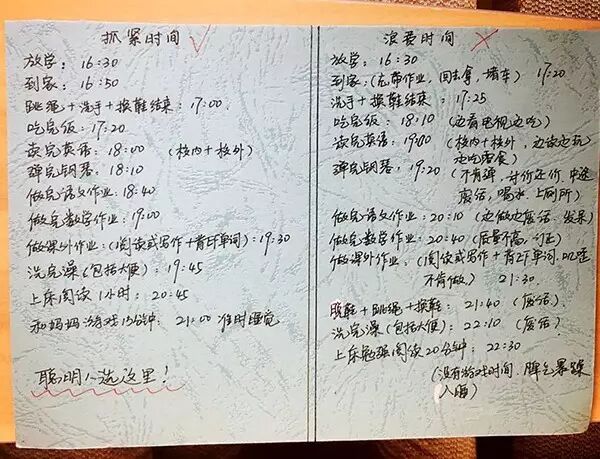 抓紧时间 ✓
放学：16:30
到家：16:50
跳绳+洗手+换鞋结束：17:00
吃完饭：17:20
读完英语：18:00 (校内+校外)
弹完钢琴：18:10
做完语文作业：18:40
做完数学作业：19:00
做课外作业：(阅读或写作+背5个单词)：19:30
洗完澡(包括大便)：19:45
上床阅读1小时：20:45
和妈妈游戏15分钟：21:00 准时睡觉
聪明人选这里！
浪费时间 ×
放学：16:30
到家：(忘带作业，回去拿，堵车) 17:20
洗手+换鞋结束：17:25
吃完饭：18:10 (边看电视边吃)
读完英语：19:00 (校内+校外，边读边玩
边吃零食)
弹完钢琴：19:20 (不肯弹，讨价还价，中途
废话，喝水，上厕所)
做完语文作业：20:10 (边做边废话、发呆)
做完数学作业：20:40 (质量不高，订正)
做课外作业：(阅读或写作+背5个单词
不肯做) 21:30
脱鞋+跳绳+换鞋：21:40 (废话)
洗完澡(包括大便)：22:10 (废话)
上床勉强阅读20分钟：22:30
(没有游戏时间，脾气暴躁
入睡)